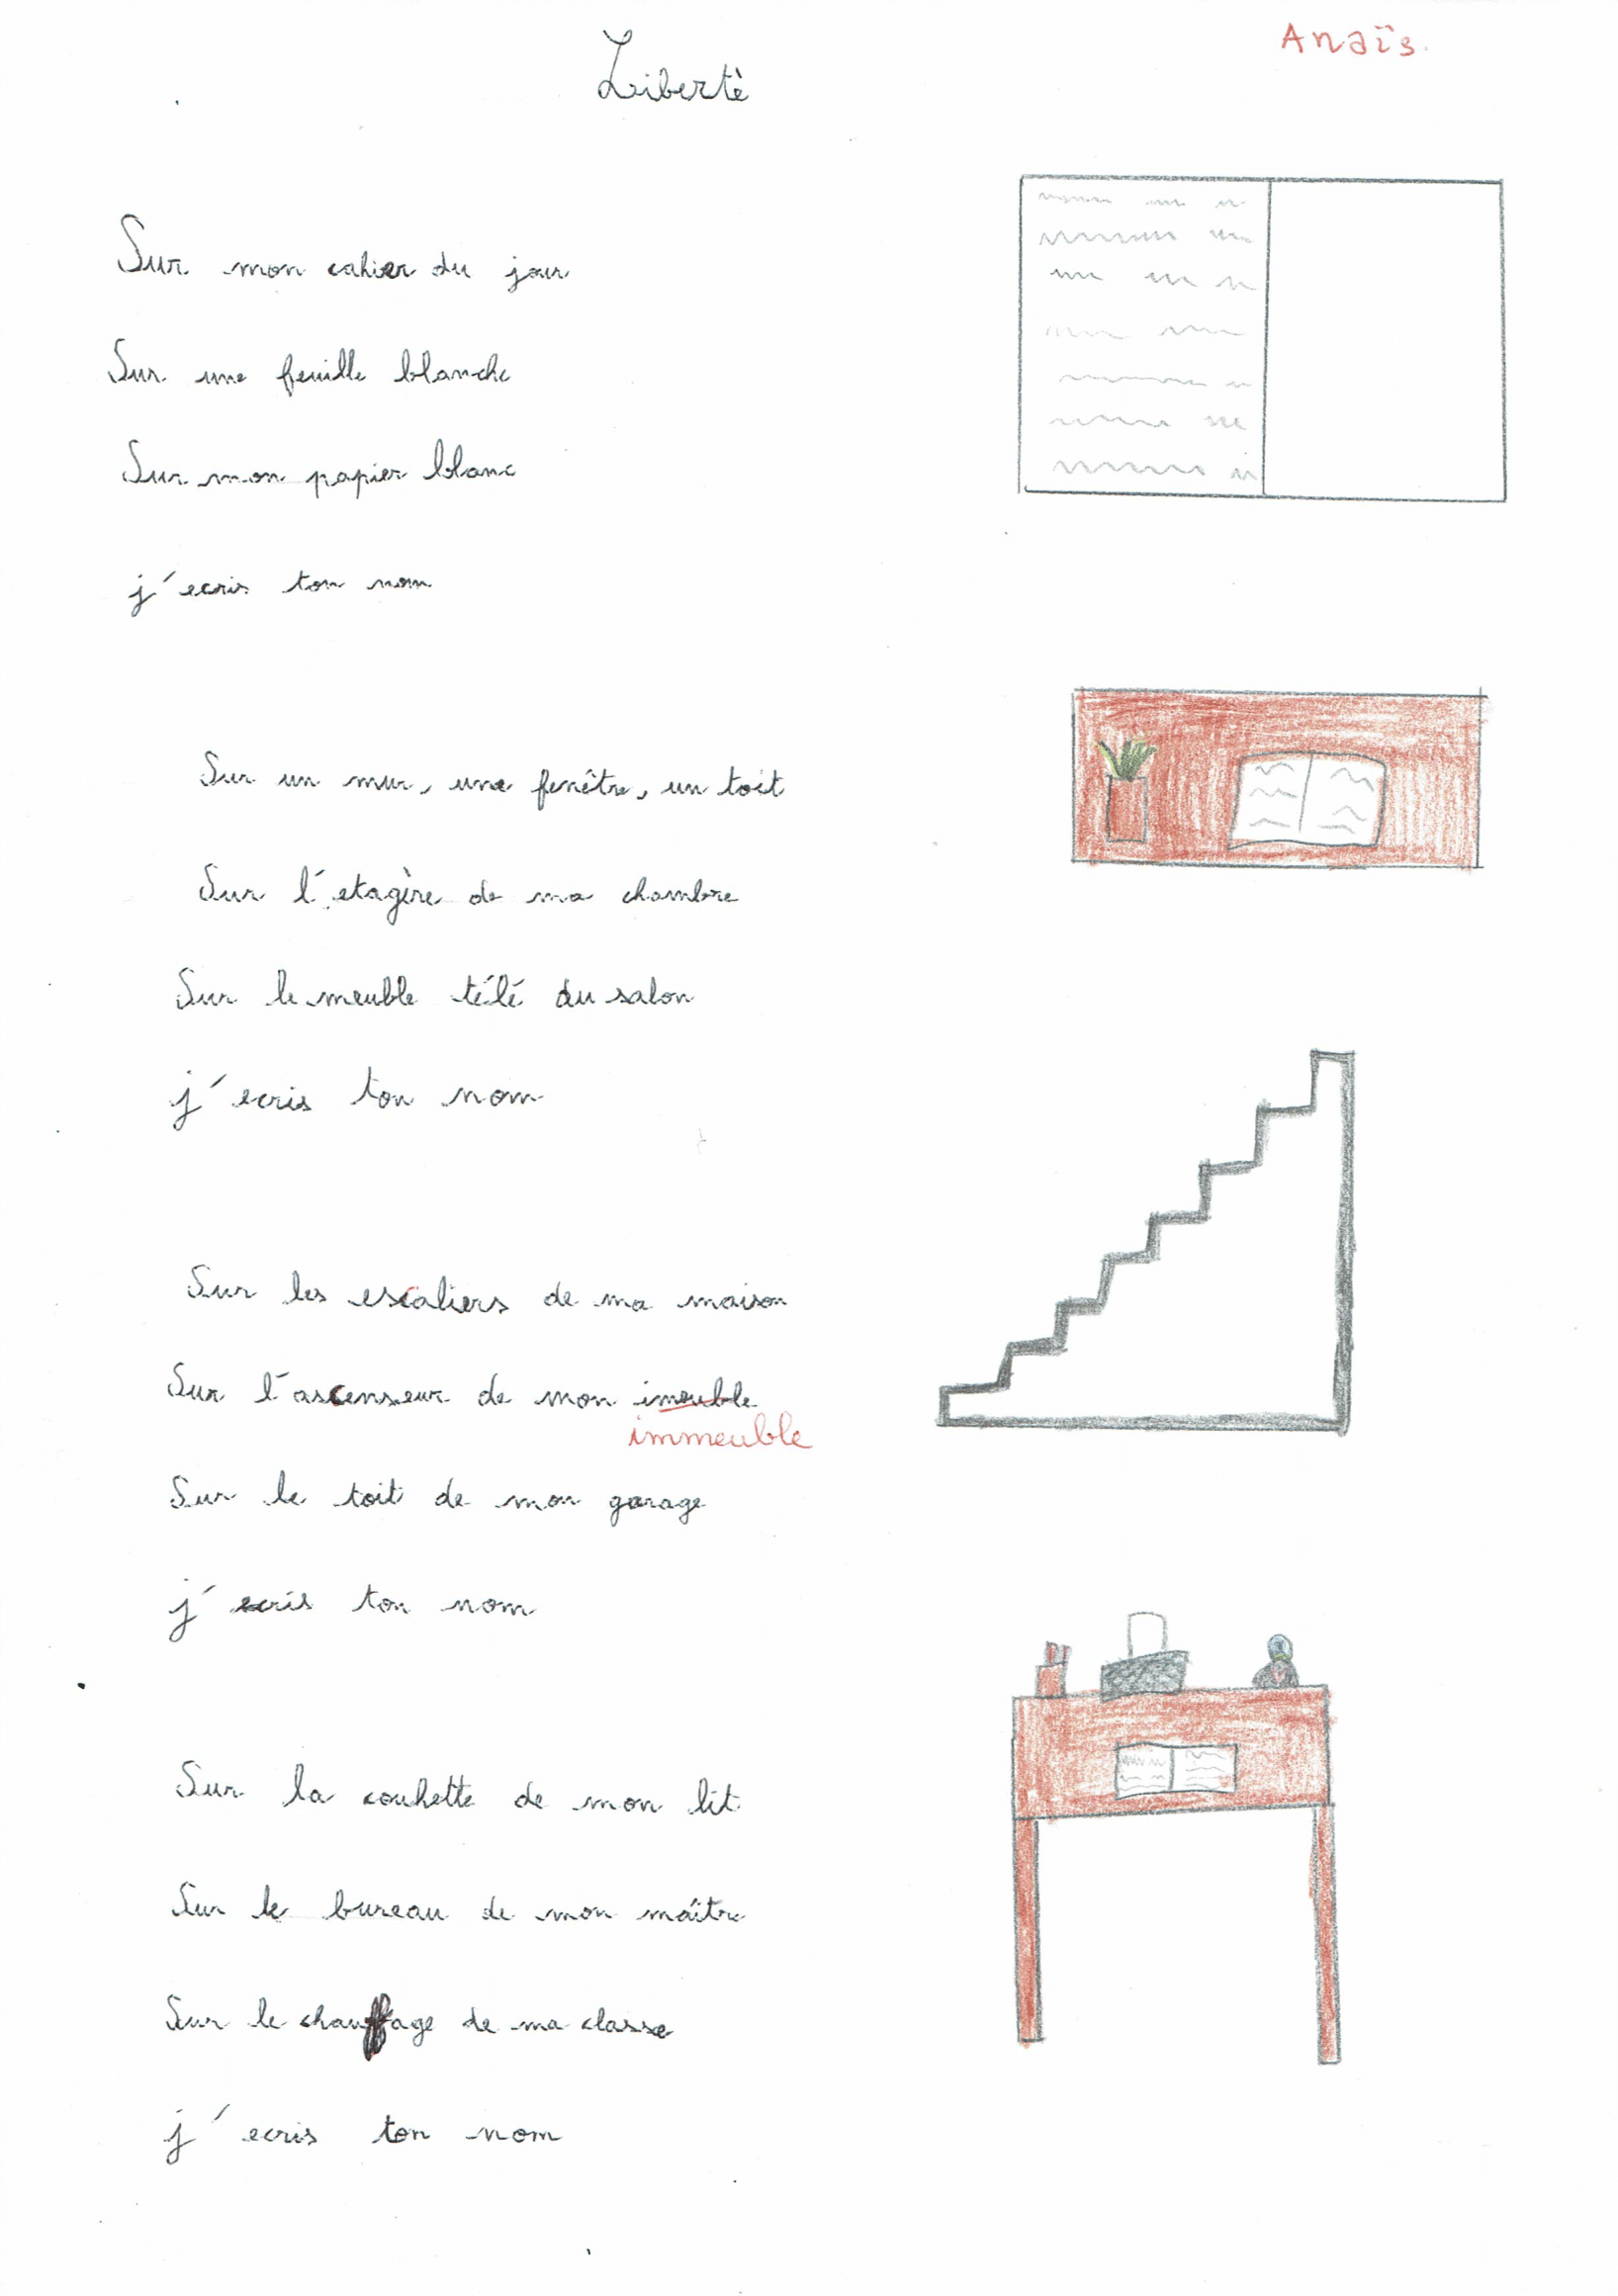 Anaïs.
Liberté
Sur mon cahier du jour
Sur une feuille blanche
Sur mon papier blanc
j'ecris ton nom
Sur un mur, une fenêtre, un toit
Sur l'etagère de ma chambre
Sur le meuble télé du salon
j'ecris ton nom
Sur les escaliers de ma maison
Sur l'ascenseur de mon imeuble
immeuble
Sur le toit de mon garage
j'ecris ton nom
Sur la couhette de mon lit
Sur le bureau de mon maître
Sur le chauffage de ma classe
j'ecris ton nom